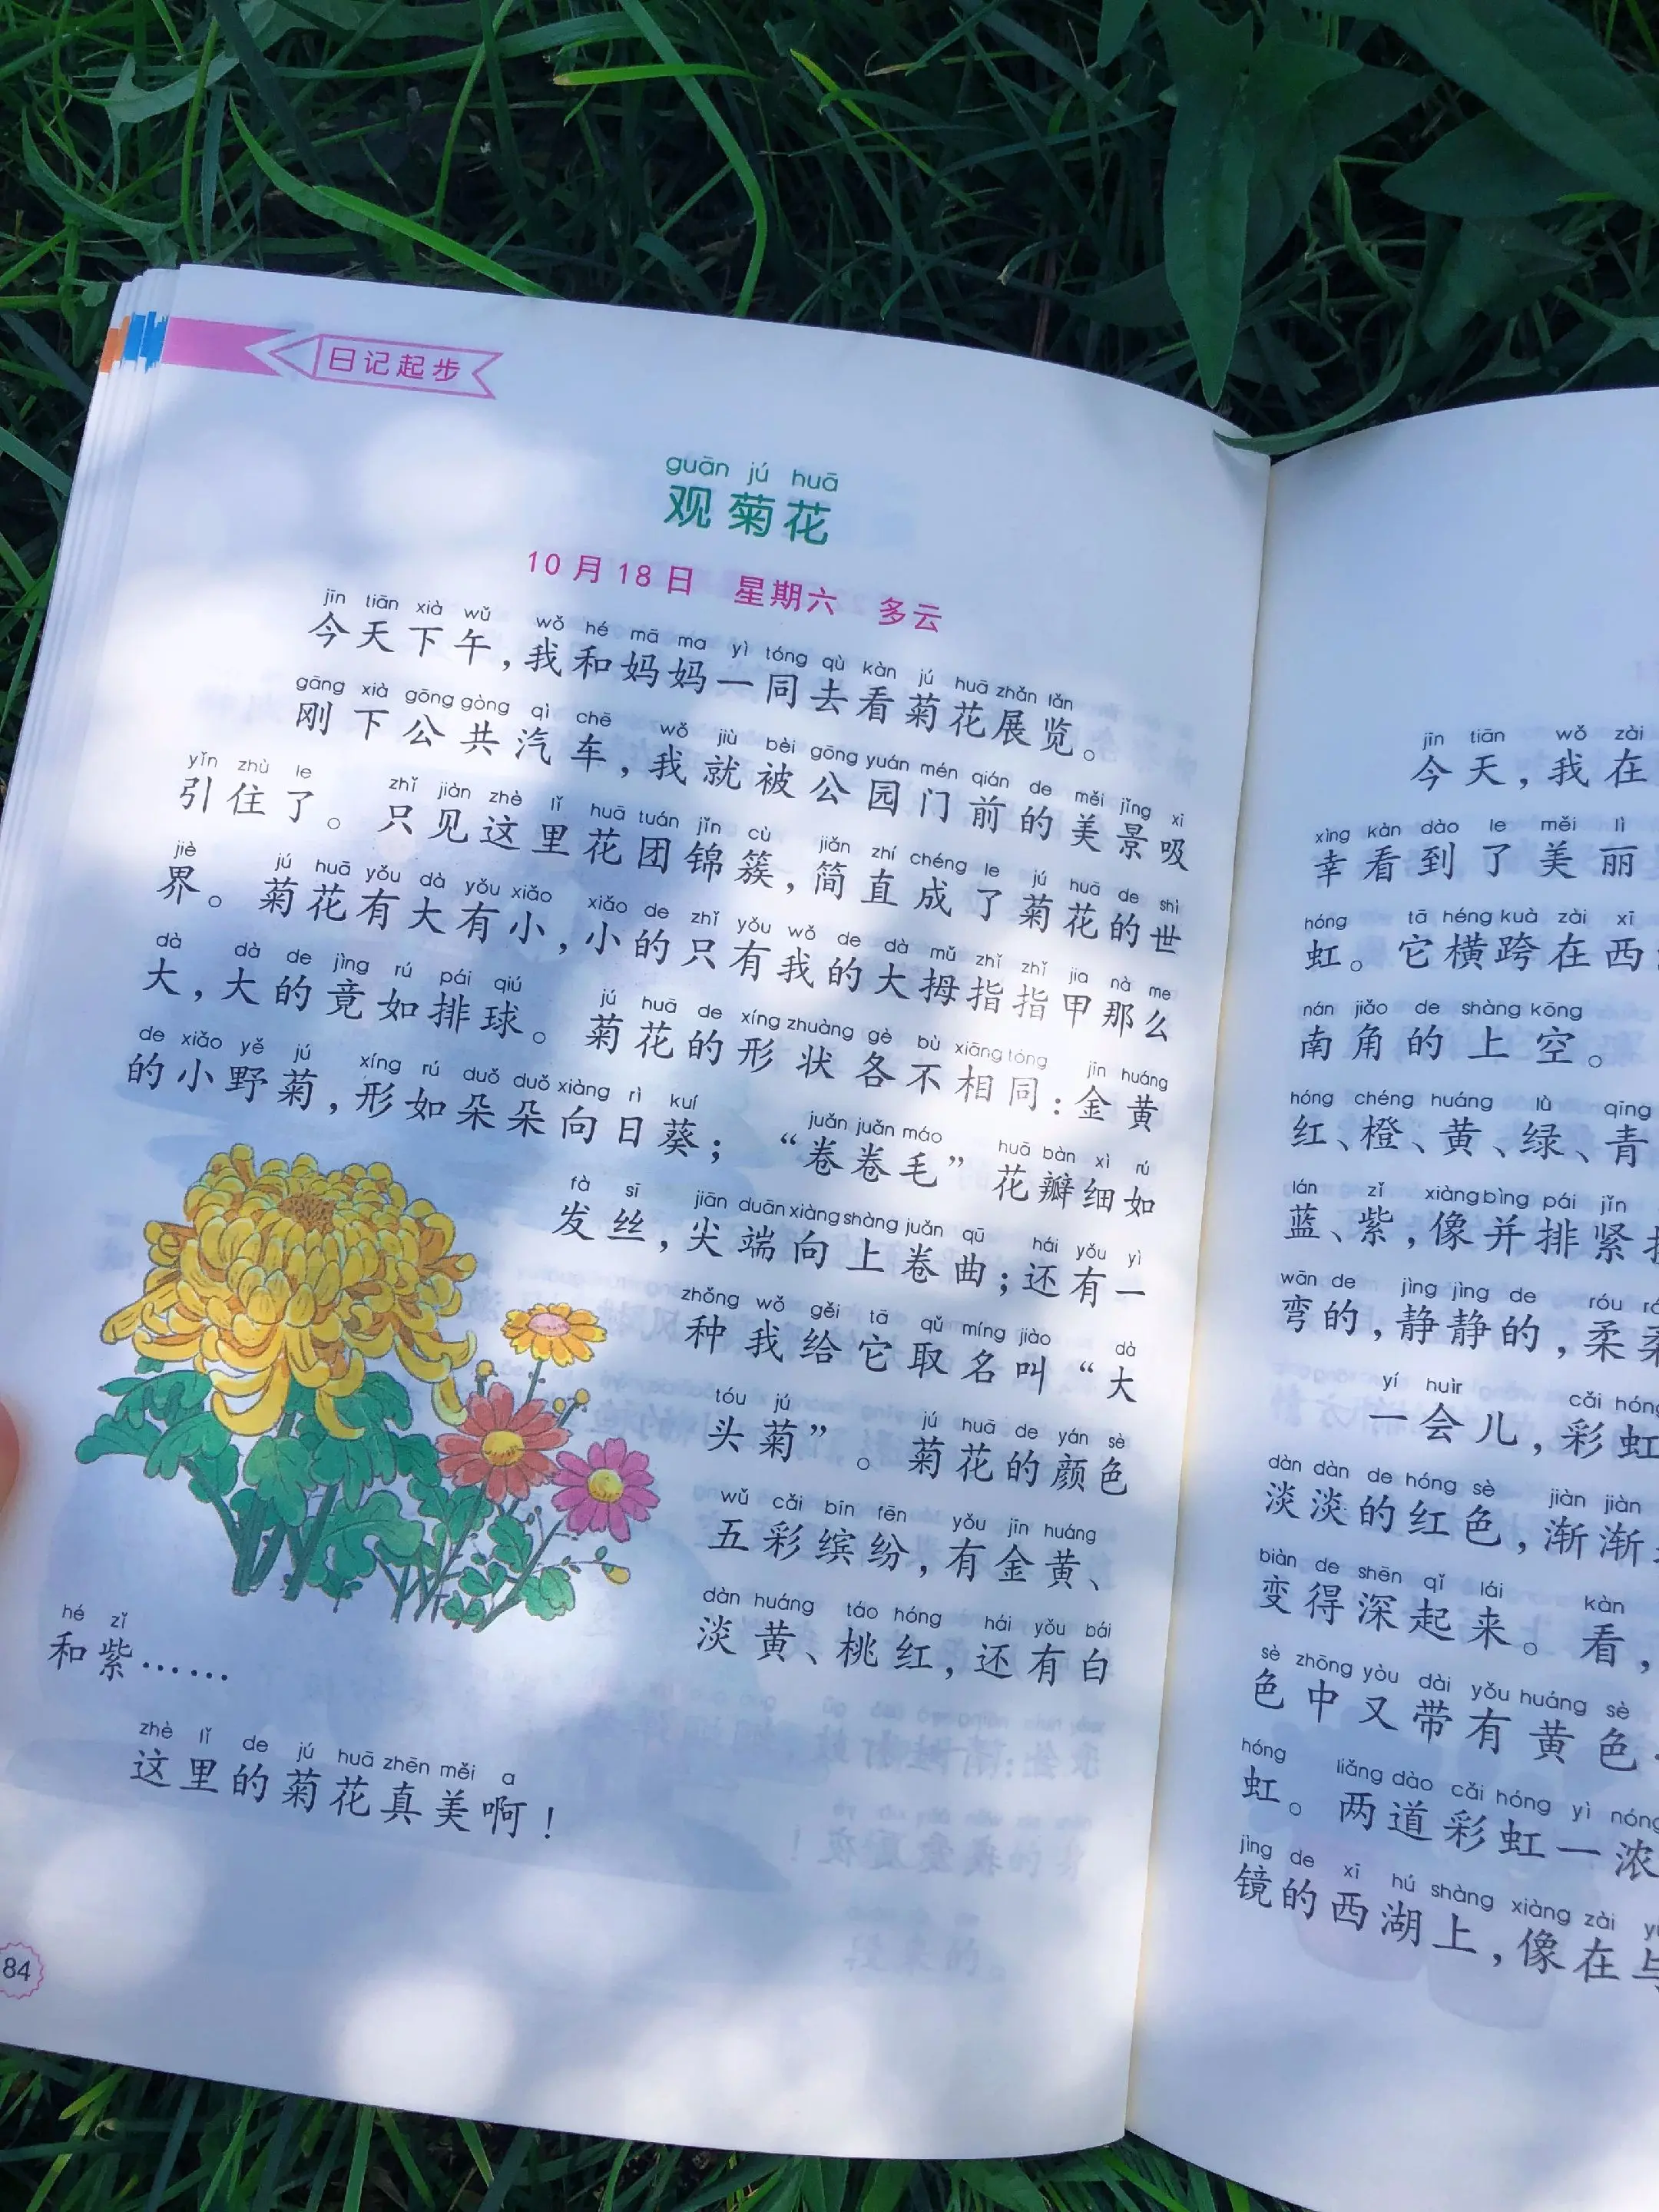 日记起步
guān jú huā
观菊花
10月18日 星期六 多云
jīn tiān xià wǔ wǒ hé mā ma yì tóng qù kàn jú huā zhǎn lǎn
今天下午，我和妈妈一同去看菊花展览。
gāng xià gōng gòng qì chē wǒ jiù bèi gōng yuán mén qián de měi jǐng xī
刚下公共汽车，我就被公园门前的美景吸
yǐn zhù le zhǐ jiàn zhè lǐ huā tuán jǐn cù jiǎn zhí chéng le jú huā de shì
引住了。只见这里花团锦簇，简直成了菊花的世
jiè jú huā yǒu dà yǒu xiǎo xiǎo de zhǐ yǒu wǒ de dà mǔ zhǐ zhǐ jia nà me
界。菊花有大有小，小的只有我的大拇指指甲那么
dà dà de jìng rú pái qiú jú huā de xíng zhuàng gè bù xiāng tóng jīn huáng
大，大的竟如排球。菊花的形状各不相同：金黄
de xiǎo yě jú xíng rú duǒ duǒ xiàng rì kuí juǎn juǎn máo huā bàn xì rú
的小野菊，形如朵朵向日葵；“卷卷毛”花瓣细如
fà sī jiān duān xiàng shàng juǎn qū hái yǒu yì
发丝，尖端向上卷曲；还有一
zhǒng wǒ gěi tā qǔ míng jiào dà
种我给它取名叫“大
tóu jú jú huā de yán sè
头菊”。菊花的颜色
wǔ cǎi bīn fēn yǒu jīn huáng
五彩缤纷，有金黄、
dàn huáng táo hóng hái yǒu bái
淡黄、桃红，还有白
hé zǐ
和紫……
zhè lǐ de jú huā zhēn měi a
这里的菊花真美啊！
84
jīn tiān wǒ zài
今天，我在
xìng kàn dào le měi lì
幸看到了美丽
hóng tā héng kuà zài xī
虹。它横跨在西
nán jiǎo de shàng kōng
南角的上空。
hóng chéng huáng lǜ qīng
红、橙、黄、绿、青
lán zǐ xiàng bìng pái jǐn
蓝、紫，像并排紧
wān de jìng jìng de róu
弯的，静静的，柔柔
yí huìr cǎi hóng
一会儿，彩虹
dàn dàn de hóng sè jiàn jiàn
淡淡的红色，渐渐
biàn de shēn qǐ lái kàn
变得深起来。看，
sè zhōng yòu dài yǒu huáng sè
色中又带有黄色
hóng liǎng dào cǎi hóng yì nóng
虹。两道彩虹一浓
jìng de xī hú shàng xiàng zài
镜的西湖上，像在与